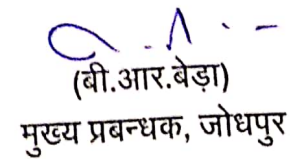 (बी.आर.बेड़ा)
मुख्य प्रबन्धक, जोधपुर